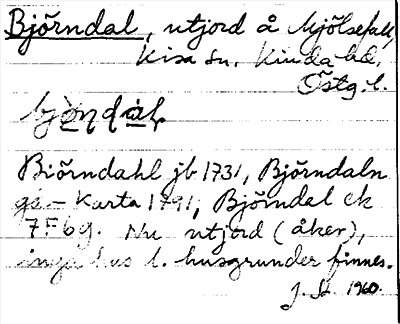 Björndal, utjord å Mjölsefall,
Kisa sn. Kinda hd.
Östg. l.
bjø̀ṇdàl
Biörndahl jb 1731, Björndaln
gä- Karta 1791, Björndal ek
7F6g. Nu utjord (åker),
inga hus l. husgrunder finnes.
J. St 1960.